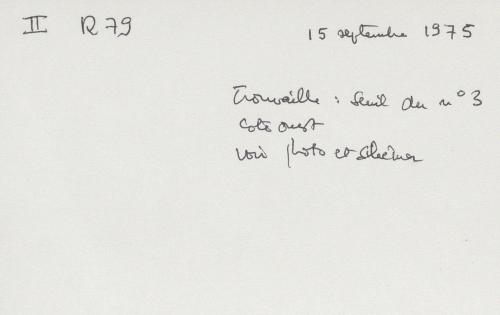 II R 79
15 septembre 1975
Trouvaille : Seuil du n° 3
coté ouest
voir photo et schéma